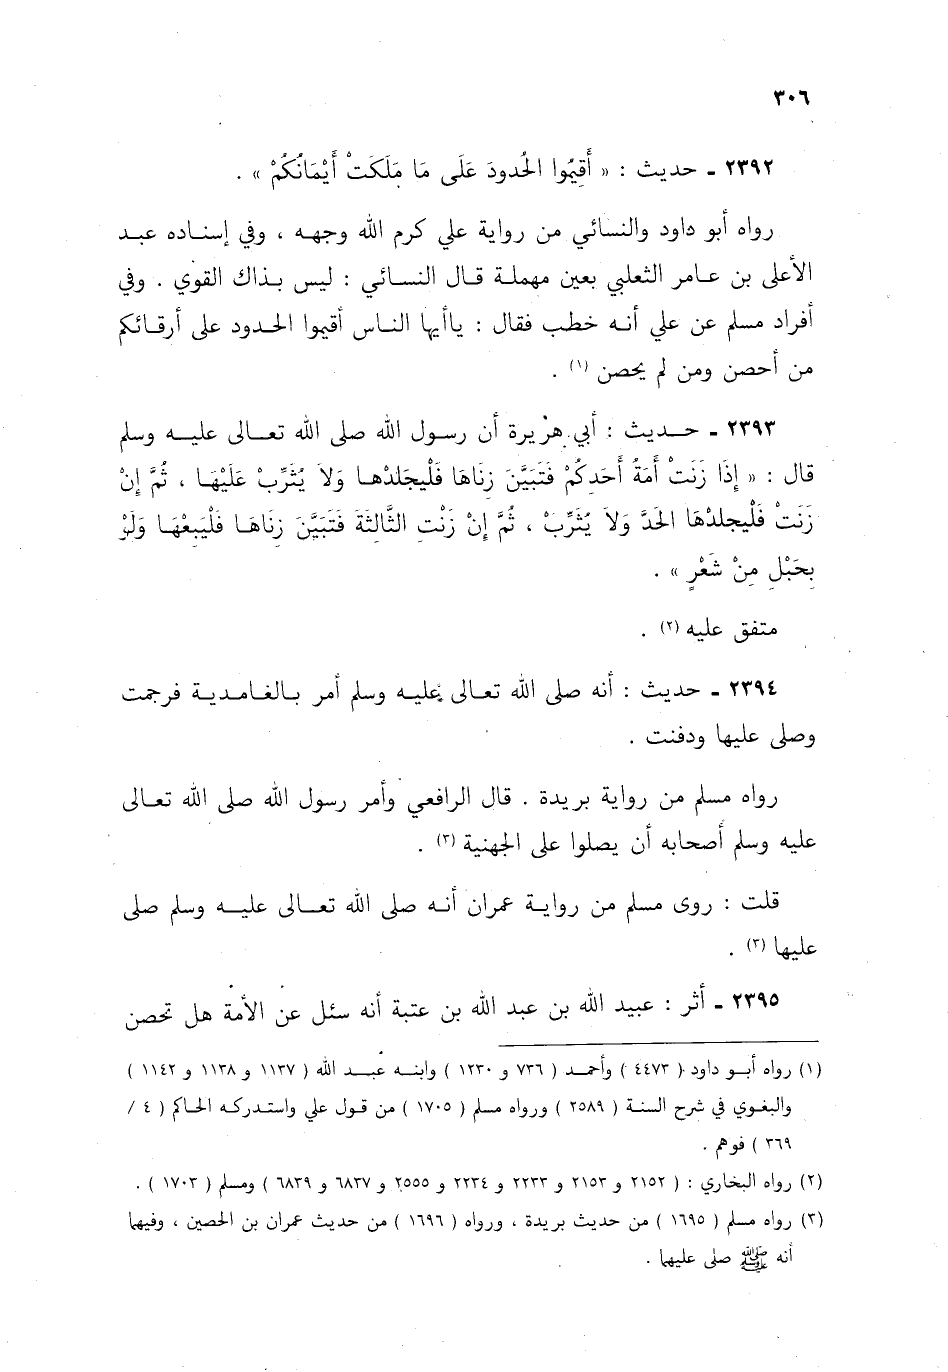 ٣٠٦
٢٣٩٢ ـ حديث : « أَقِيمُوا الحُدودَ عَلَى مَا مَلَكَتْ أَيْمَانُكُمْ » .
رواه أبو داود والنسائي من رواية علي كرم الله وجهه ، وفي إسناده عبد
الأعلى بن عامر الثعلبي بعين مهملة قال النسائي : ليس بذاك القوي . وفي
أفراد مسلم عن علي أنه خطب فقال : ياأيها الناس أقيموا الحدود على أرقائكم
من أحصن ومن لم يحصن (١) .
٢٣٩٣ ـ حديث : أبي هريرة أن رسول الله صلى الله تعالى عليه وسلم
قال : « إِذَا زَنَتْ أَمَةُ أَحَدِكُمْ فَتَبَيَّنَ زِنَاهَا فَلْيجلدْها وَلاَ يُثَرِّبْ عَلَيْهَا ، ثُمَّ إِنْ
زَنَتْ فَلْيجلدْهَا الحَدَّ وَلاَ يُثَرِّبْ ، ثُمَّ إِنْ زَنْت الثَّالِثَةَ فَتَبَيَّنَ زِنَاهَا فَلْيَبِعْهَا وَلَوْ
بِحَبْلٍ مِنْ شَعْرٍ » .
متفق عليه (٢) .
٢٣٩٤ ـ حديث : أنه صلى الله تعالى عليه وسلم أمر بالغامدية فرجمت
وصلى عليها ودفنت .
رواه مسلم من رواية بريدة . قال الرافعي وأمر رسول الله صلى الله تعالى
عليه وسلم أصحابه أن يصلوا على الجهنية (٣) .
قلت : روى مسلم من رواية عمران أنه صلى الله تعالى عليه وسلم صلى
عليها (٣) .
٢٣٩٥ ـ أثر : عبيد الله بن عبد الله بن عتبة أنه سئل عن الأمة هل تحصن
(١) رواه أبو داود ( ٤٤٧٣ ) وأحمد ( ٧٣٦ و ١٢٣٠ ) وابنه عبد الله ( ١١٣٧ و ١١٣٨ و ١١٤٢ )
والبغوي في شرح السنة ( ٢٥٨٩ ) ورواه مسلم ( ١٧٠٥ ) من قول علي واستدركه الحاكم ( ٤ /
٣٦٩ ) فوهم .
(٢) رواه البخاري : ( ٢١٥٢ و ٢١٥٣ و ٢٢٣٣ و ٢٢٣٤ و ٢٥٥٥ و ٦٨٣٧ و ٦٨٣٩ ) ومسلم ( ١٧٠٣ ) .
(٣) رواه مسلم ( ١٦٩٥ ) من حديث بريدة ، ورواه ( ١٦٩٦ ) من حديث عمران بن الحصين ، وفيهما
أنه ﷺ صلى عليهما .